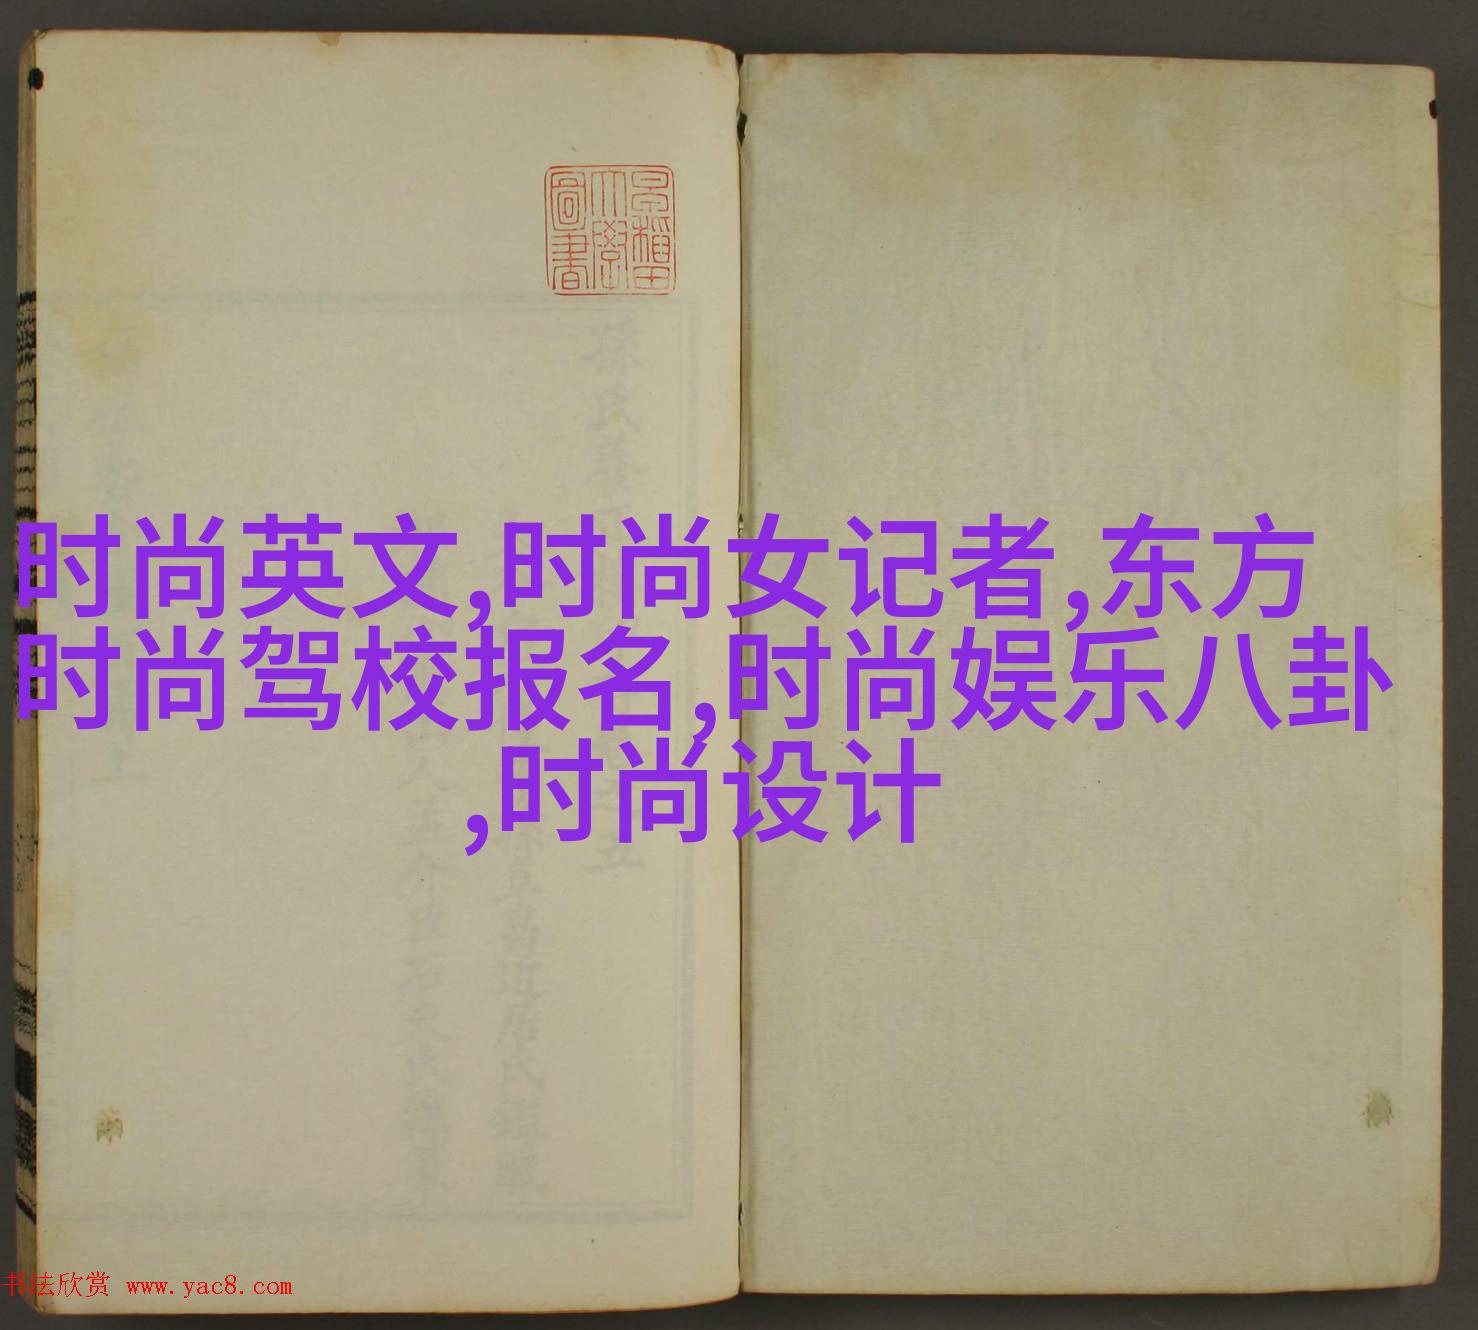 早稲田
大學
圖書
时尚英文,时尚女记者,东方
时尚驾校报名,时尚娱乐八卦
,时尚设计
书法欣赏 www.yac8.com